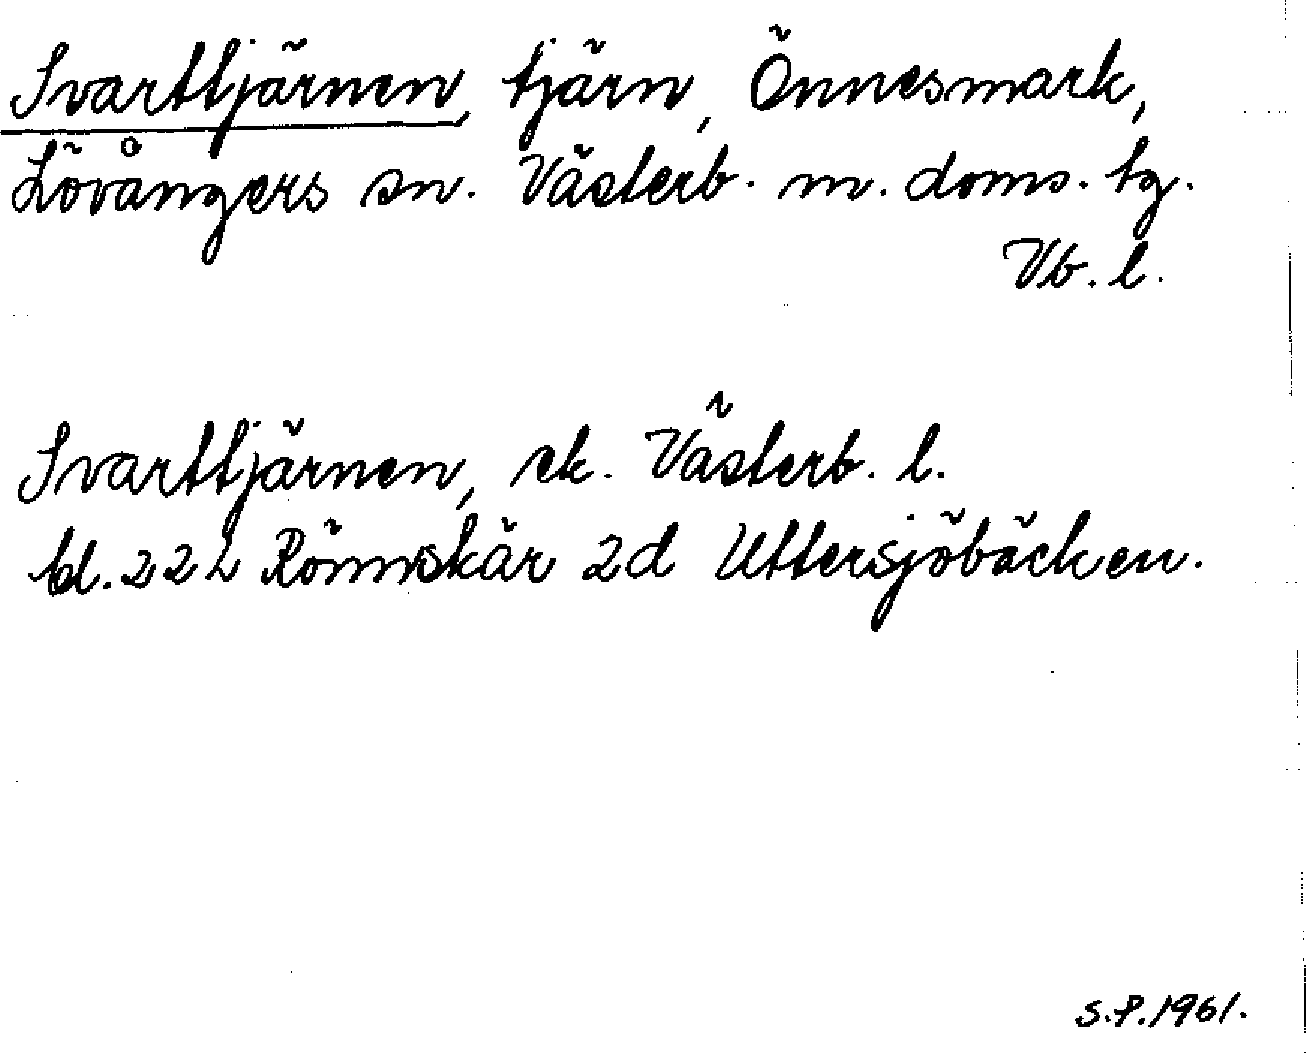 Svarttjärnen, tjärn, Önnesmark,
Lövångers sn. Västerb. m. doms. tg.
Vb. l.
Svarttjärnen, ek. Västerb. l.
bl. 22 L Rönnskär 2d Uttersjöbäcken.
S.P. 1961.